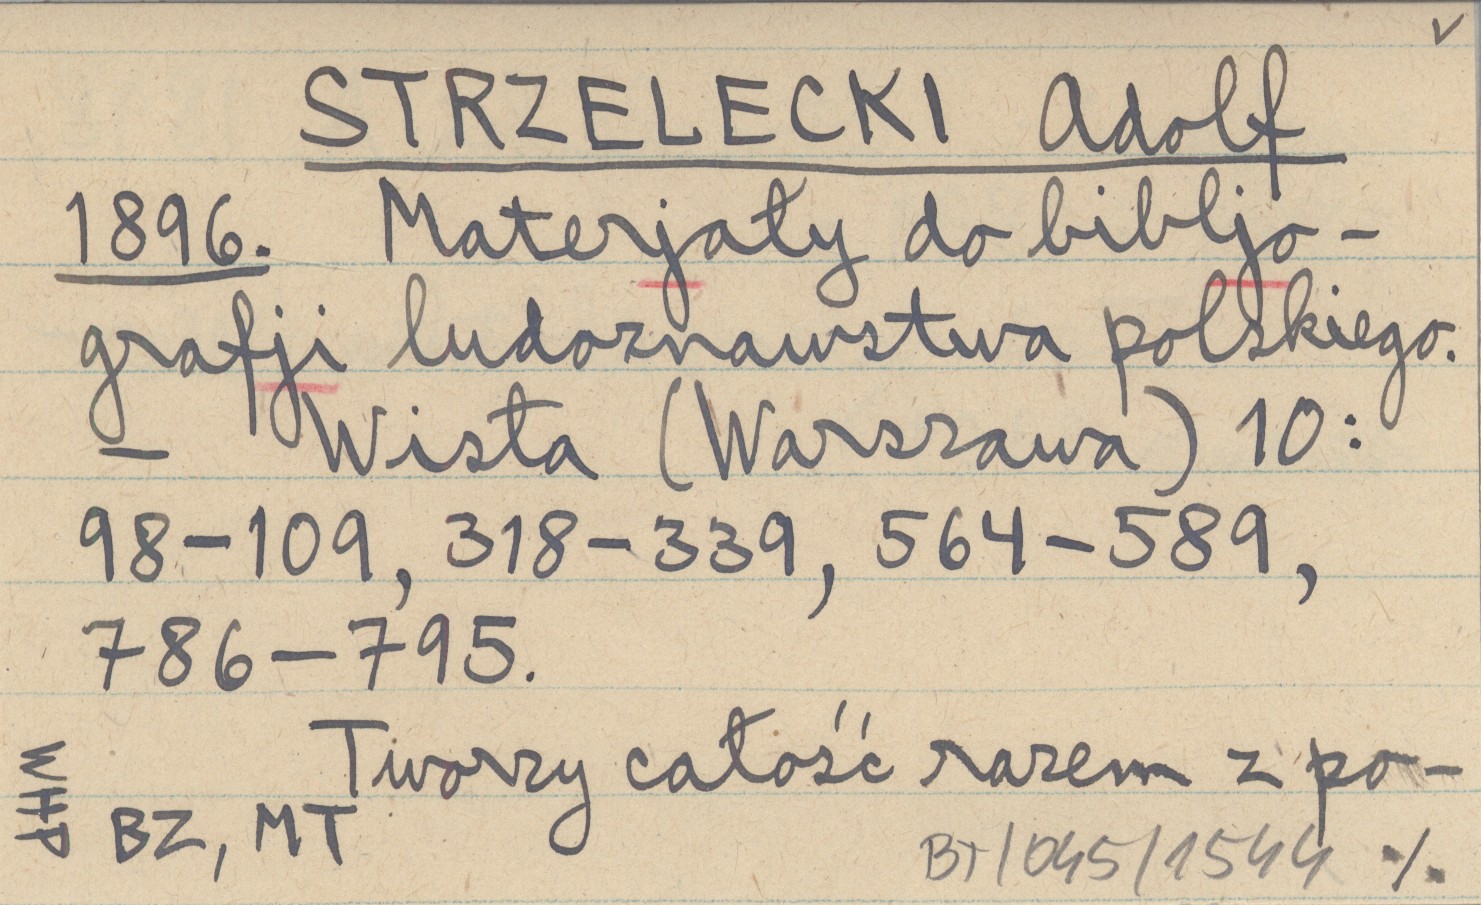 v
STRZELECKI Adolf
1896. Materjały do bibljo-
grafji ludoznawstwa polskiego.
— Wisła (Warszawa) 10:
98-109, 318-339, 564-589,
786-795.
Tworzy całość razem z po-
WHP
BZ, MT
BT/045/1544 ./.